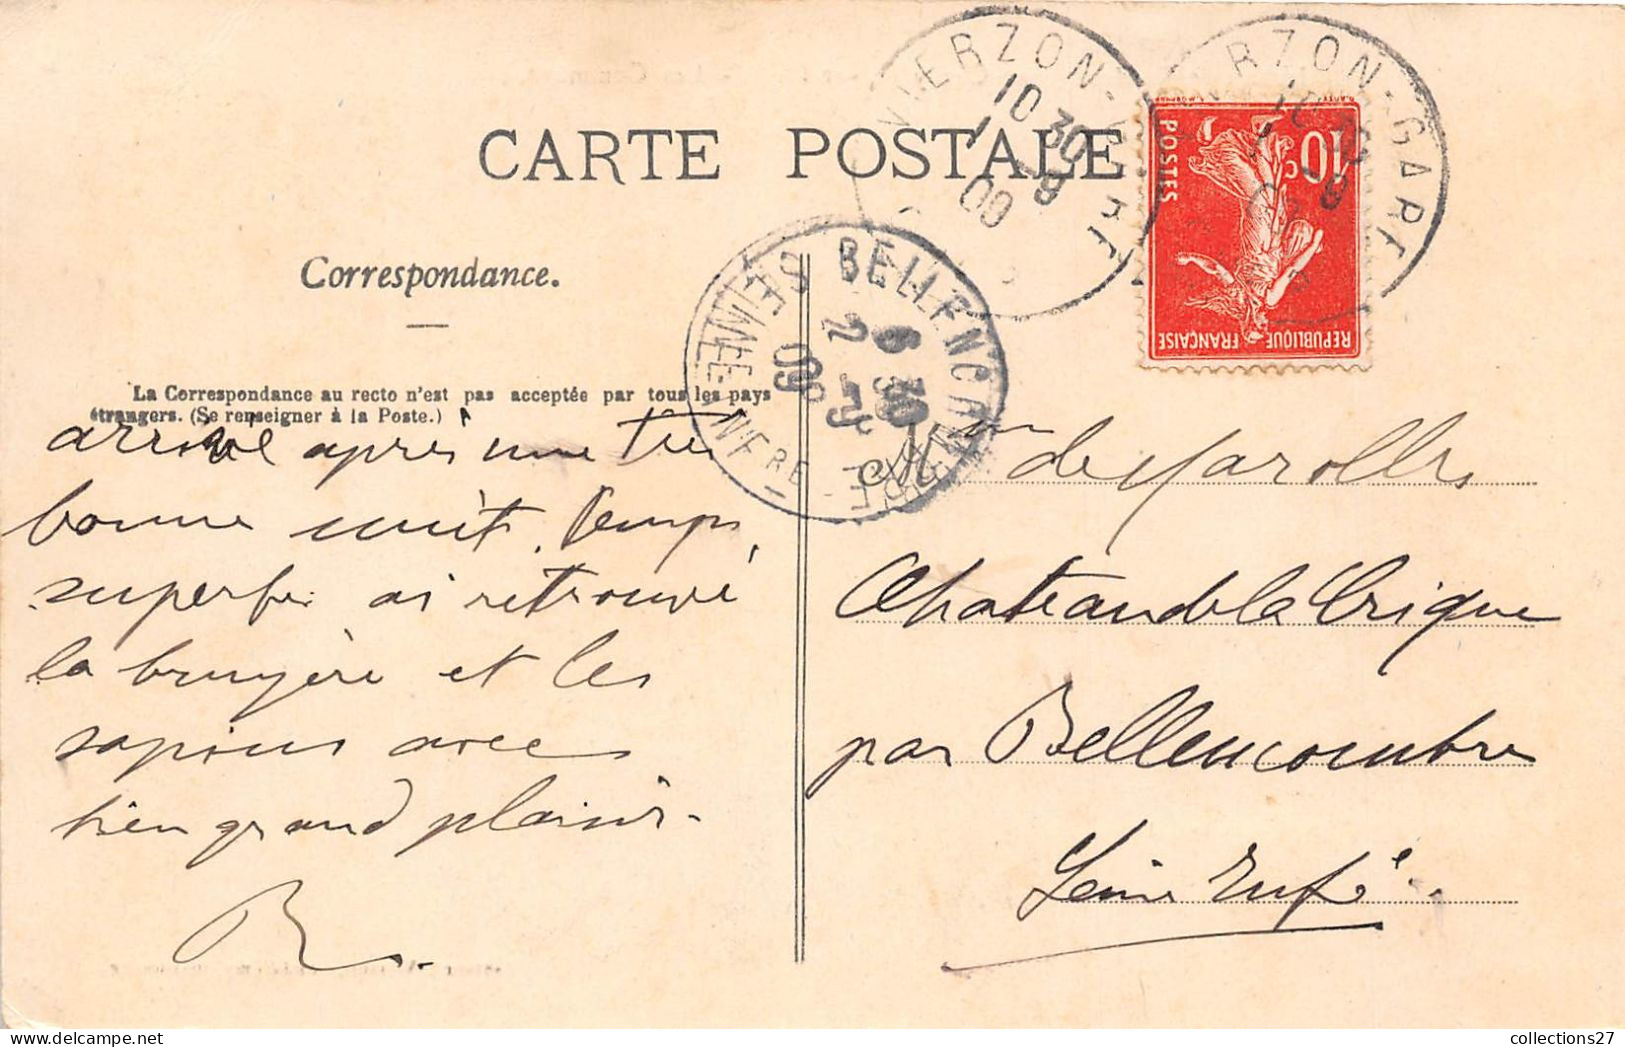 CARTE POSTALE
Correspondance.
La Correspondance au recto n'est pas acceptée par tous les pays
étrangers. (Se renseigner à la Poste.)
arrivé après une très
bonne nuit. Temps
superbe. ai retrouvé
la bruyère et les
sapins avec
bien grand plaisir.
R.
VIERZON-GARE
10 30
1 -9
09
VIERZON-GARE
10 30
BELLENCOMBRE
6 30
2 -9
09
SEINE-INFRE
10c
POSTES
REPUBLIQUE FRANÇAISE
M de Marolles
Chateau de la Crique
par Bellencombre
Seine Infre
collections27